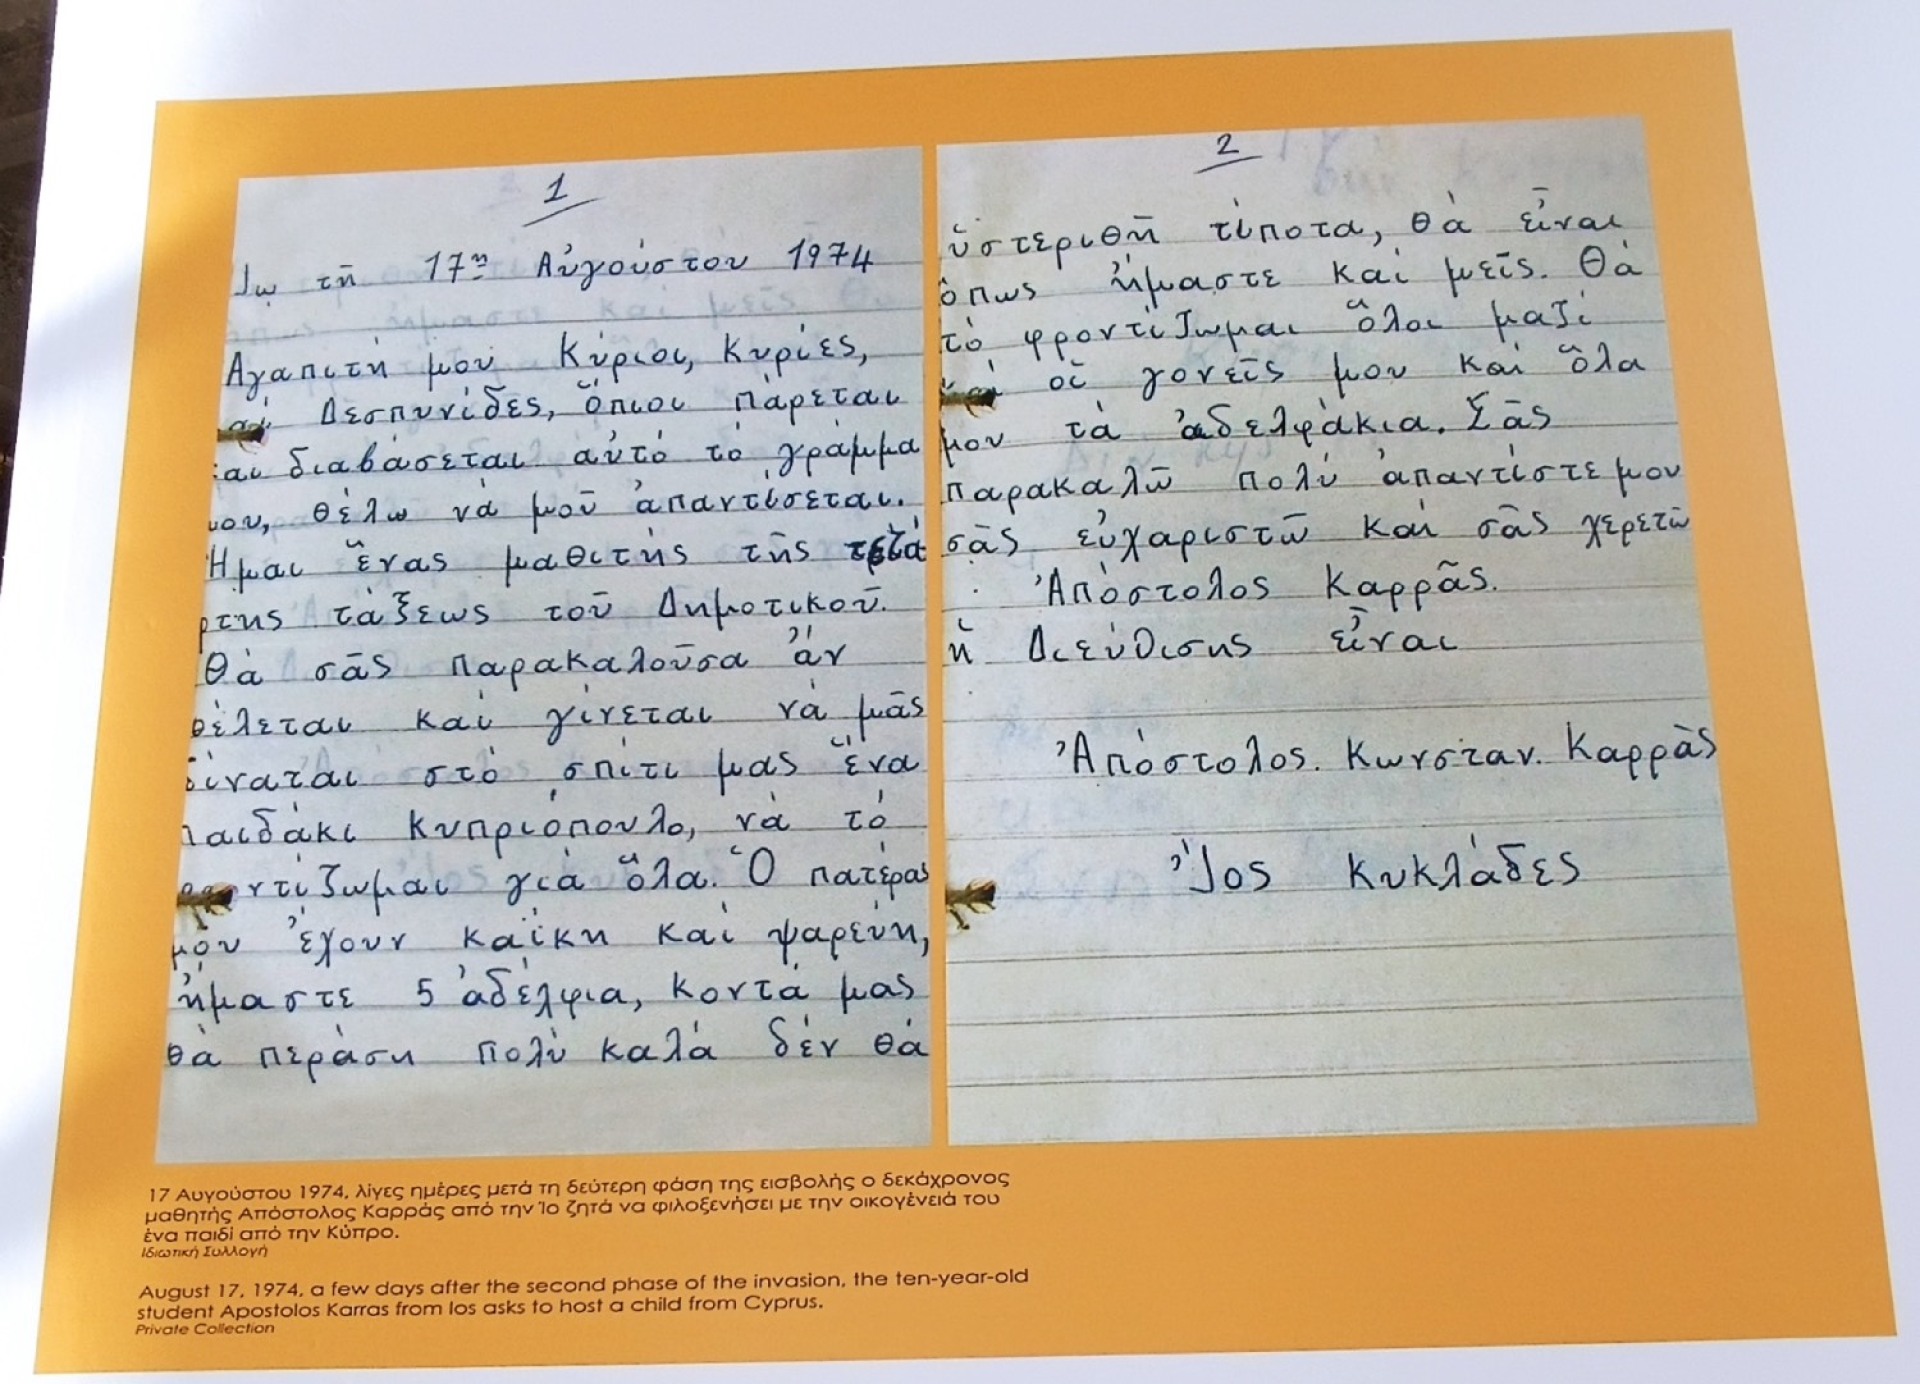 1
Ἰῳ τῆ 17η Αὐγούστου 1974
Αγαπιτή μου Κύριοι, Κυρίες,
Δεσπυνίδες, ὅπιοι πάρεται
και διαβάσεται αὐτό τό γράμμα
μου, θέλω νά μοῦ ἀπαντίσεται.
Ἡμαι ἕνας μαθιτής τῆς τετά
ρτης τάξεως τοῦ Δημοτικοῦ.
Θά σᾶς παρακαλοῦσα ἄν
θέλεται καί γίνεται νά μᾶς
δίναται στό σπίτι μας ἕνα
παιδάκι Κυπριόπουλο, νά τό
φροντίζωμαι γιά ὅλα. Ὁ πατέρας
μου ἔχουν καϊκη καί ψαρεύη,
ἤμαστε 5 ἀδέλφια, κοντά μας
θά περάση πολύ καλά δέν θά
2
ὑστεριθῆ τίποτα, θά εἶναι
ὅπως ἤμαστε καί μεῖς. Θά
τό φροντίζωμαι ὅλοι μαζί
καί οἱ γονεῖς μου καί ὅλα
μου τά ἀδελφάκια. Σᾶς
παρακαλῶ πολύ ἀπαντίστε μου
σᾶς εὐχαριστῶ καί σᾶς χερετῶ
Ἀπόστολος Καρρᾶς.
ἡ Διεύθισης εἶναι
Ἀπόστολος. Κωνσταν. Καρρᾶς
Ἴος Κυκλάδες
17 Αυγούστου 1974, λίγες ημέρες μετά τη δεύτερη φάση της εισβολής ο δεκάχρονος
μαθητής Απόστολος Καρράς από την Ίο ζητά να φιλοξενήσει με την οικογένειά του
ένα παιδί από την Κύπρο.
Ιδιωτική Συλλογή
August 17, 1974, a few days after the second phase of the invasion, the ten-year-old
student Apostolos Karras from Ios asks to host a child from Cyprus.
Private Collection